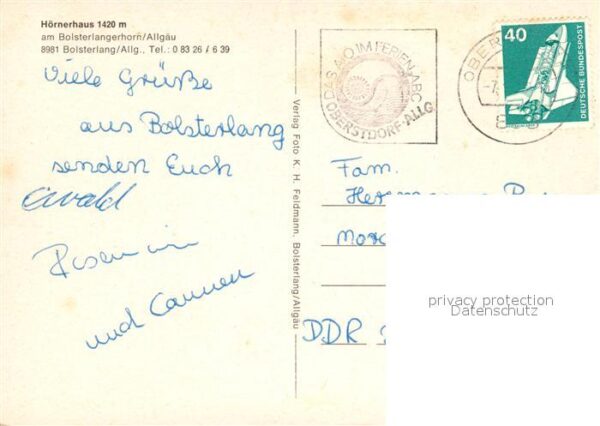 Hörnerhaus 1420 m
am Bolsterlangerhorn/Allgäu
8981 Bolsterlang/Allg., Tel.: 0 83 26 / 6 39
Viele Grüße
aus Bolsterlang
senden Euch
Ewald
und Carmen
Verlag Foto K. H. Feldmann, Bolsterlang/Allgäu
DAS A-O IM FERIEN-ABC
OBERSTDORF-ALLG
OBER
40
DEUTSCHE BUNDESPOST
Fam.
DDR
privacy protection
Datenschutz